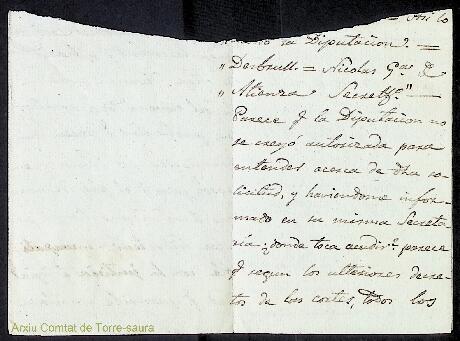 = Asi lo
la Diputacion. =
„ Desbrull. = Nicolas Gas. de
„ Atienza Secretº." —
Parece q la Diputacion no
se creyó autorizada para
entender acerca de dha so-
licitud, y haviendome infor-
mado en su misma Secreta-
ria ¿donde toca acudir? parece
q segun los ulteriores decre-
tos de las cortes, todos los
Arxiu Comtat de Torre-saura